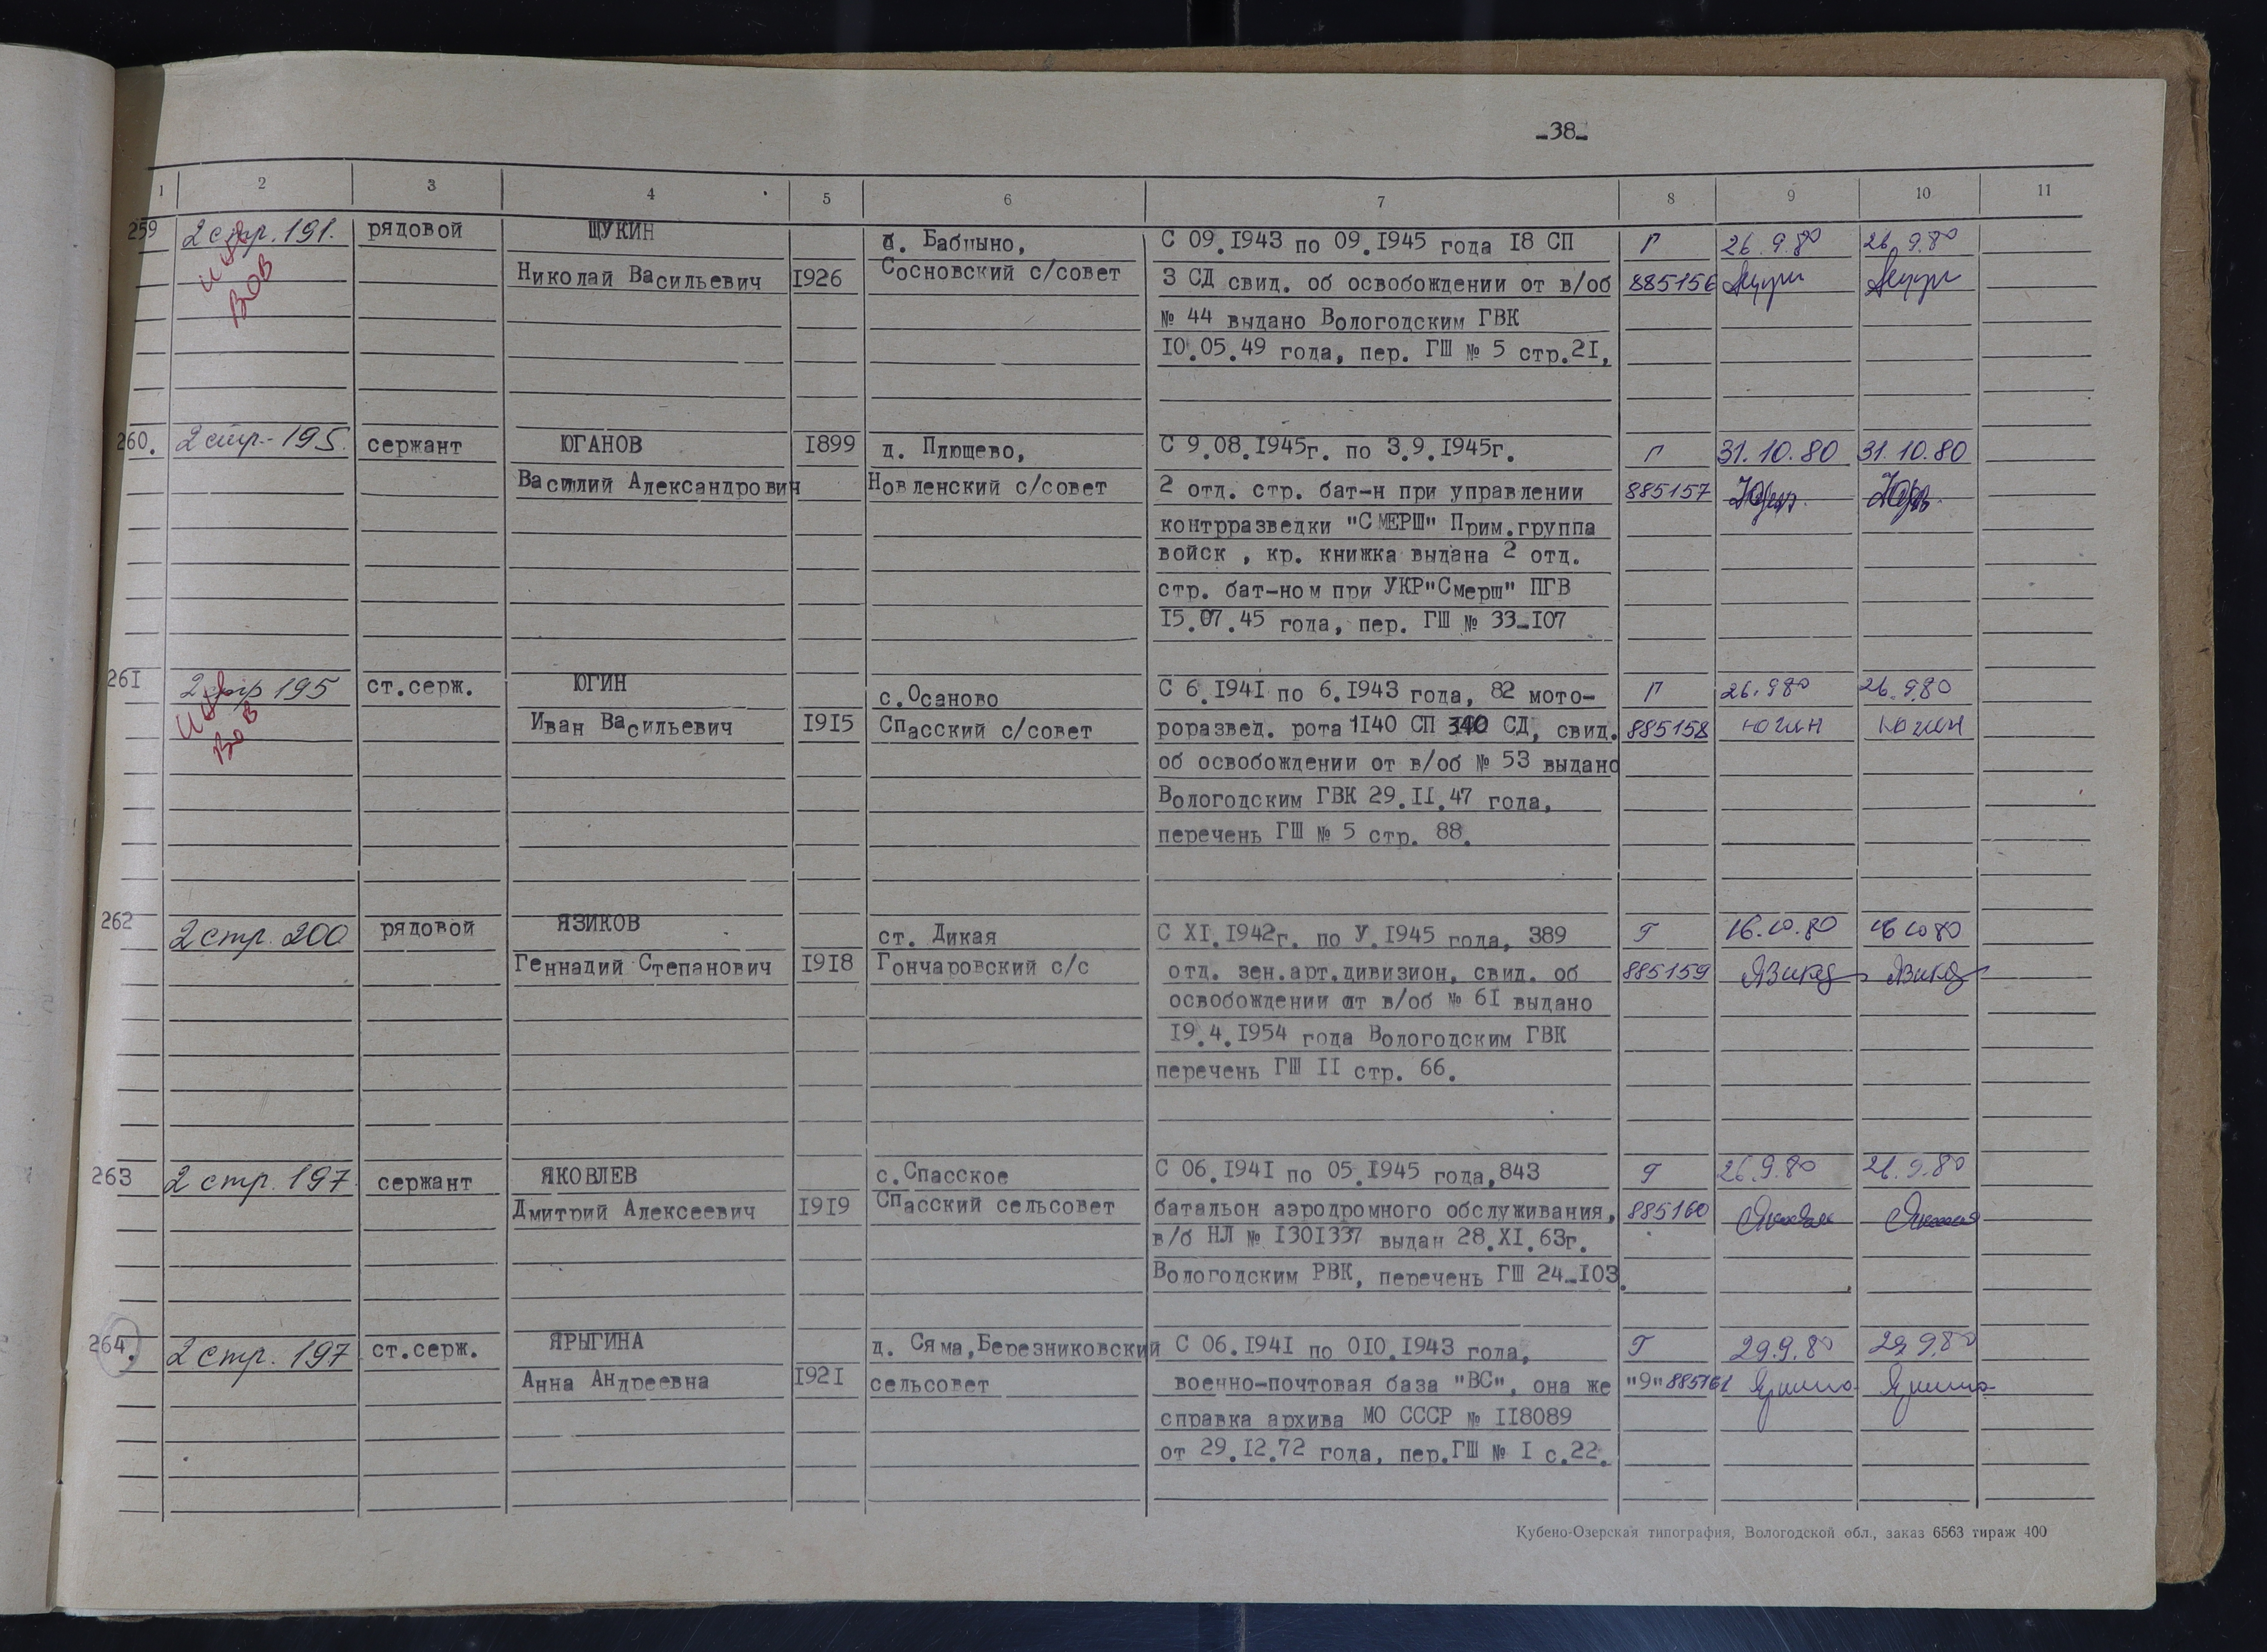 -38-
1 2 3 4 5 6 7 8 9 10 11
259 2 стр. 191. рядовой ЩУКИН д. Бабцыно, С 09.1943 по 09.1945 года 18 СП Г 26.9.80 26.9.80
инв Николай Васильевич 1926 Сосновский с/совет 3 СД свид. об освобождении от в/об 885156
ВОВ № 44 выдано Вологодским ГВК
10.05.49 года, пер. ГШ № 5 стр.21,
260. 2 стр. 195. сержант ЮГАНОВ 1899 д. Плющево, С 9.08.1945г. по 3.9.1945г. Г 31.10.80 31.10.80
Василий Александрович Новленский с/совет 2 отд. стр. бат-н при управлении 885157
контрразведки "СМЕРШ" Прим.группа
войск , кр. книжка выдана 2 отд.
стр. бат-ном при УКР"Смерш" ПГВ
15.07.45 года, пер. ГШ № 33-107
261 2 стр 195 ст.серж. ЮГИН с.Осаново С 6.1941 по 6.1943 года, 82 мото- Г 26.9.80 26.9.80
инв Иван Васильевич 1915 Спасский с/совет роразвед. рота 1140 СП 340 СД, свид. 885158 Югин Югин
ВОВ об освобождении от в/об № 53 выдано
Вологодским ГВК 29.11.47 года,
перечень ГШ № 5 стр. 88.
262 2 стр. 200 рядовой ЯЗИКОВ ст. Дикая С XI.1942г. по У.1945 года, 389 Г 16.10.80 16.10.80
Геннадий Степанович 1918 Гончаровский с/с отд. зен.арт.дивизион, свид. об 885159
освобождении от в/об № 61 выдано
19.4.1954 года Вологодским ГВК
перечень ГШ II стр. 66.
263 2 стр. 197. сержант ЯКОВЛЕВ с.Спасское С 06.1941 по 05.1945 года,843 Г 26.9.80 26.9.80
Дмитрий Алексеевич 1919 Спасский сельсовет батальон аэродромного обслуживания, 885160
в/б НЛ № 1301337 выдан 28.XI.63г.
Вологодским РВК, перечень ГШ 24-103.
264. 2 стр. 197 ст.серж. ЯРЫГИНА д. Сяма,Березниковский С 06.1941 по 010.1943 года, Г 29.9.80 29.9.80
Анна Андреевна 1921 сельсовет военно-почтовая база "ВС", она же "9" 885161
справка архива МО СССР № 118089
от 29.12.72 года, пер.ГШ № I с.22.
Кубено-Озерская типография, Вологодской обл., заказ 6563 тираж 400